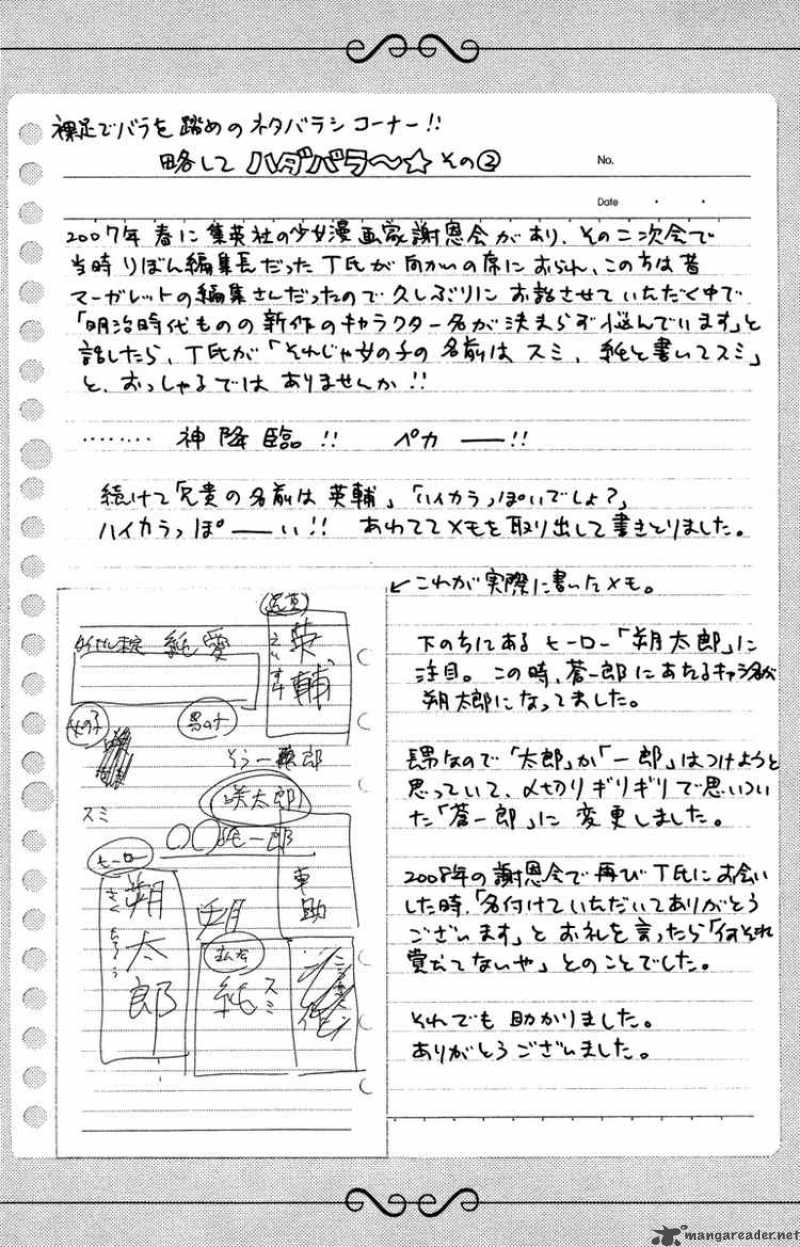 裸足でバラを踏めのネタバラシコーナー!!
略して ハダバラ〜☆ その②
No.
Date
2007年春に集英社の少女漫画家謝恩会があり、その二次会で
当時りぼん編集長だったT氏が向かいの席におられ、この方は昔
マーガレットの編集さんだったので久しぶりにお話させていただく中で
「明治時代ものの新作のキャラクター名が決まらず悩んでいます」と
話したら、T氏が「それじゃ女の子の名前はスミ、純と書いてスミ」
と、おっしゃるではありませんか!!
‥‥‥‥ 神降臨!! ペカ ——!!
続けて「兄貴の名前は英輔」「ハイカラっぽいでしょ?」
ハイカラっぽ——い!! あわててメモを取り出して書きとりました。
←これが実際に書いたメモ。
下の方にあるヒーロー「朔太郎」に
注目。この時、蒼一郎にあたるキャラ名が
朔太郎になってました。
長男なので「太郎」か「一郎」はつけようと
思っていて、〆切りギリギリで思いつい
た「蒼一郎」に変更しました。
2008年の謝恩会で再びT氏にお会い
した時、「名付けていただいてありがとう
ございます」とお礼を言ったら「何それ
覚えてないや」とのことでした。
それでも助かりました。
ありがとうございました。
純愛
英輔
えいすけ
女の子
男の子
そう一郎
咲太郎
スミ
〇〇純一郎
ヒーロー
朔太郎
さくたろう
朔
車助
純
スミ
mangareader.net